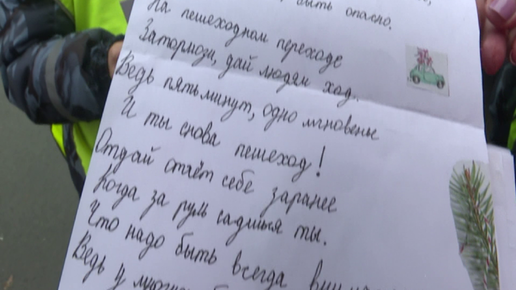 быть опасно.
На пешеходном переходе
Затормози, дай людям ход.
Ведь пять минут, одно мгновенье
И ты снова пешеход!
Отдай отчёт себе заранее
Когда за руль садишься ты.
Что надо быть всегда
Ведь у